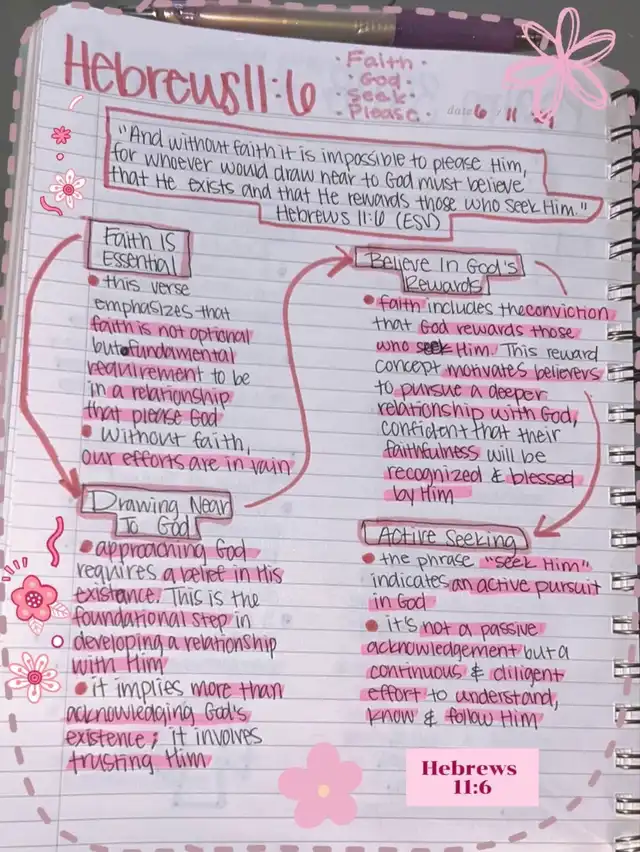 Hebrews 11:6
· Faith ·
· God ·
· Seek ·
· Please ·
date 6 / 11 /
"And without faith it is impossible to please Him,
for whoever would draw near to God must believe
that He exists and that He rewards those who seek Him."
Hebrews 11:6 (ESV)
Faith Is
Essential
• this verse
emphasizes that
faith is not optional
but fundamental
requirement to be
in a relationship
that please God
• Without faith,
our efforts are in vain
Drawing Near
To God
• approaching God
requires a belief in His
existence. This is the
foundational step in
developing a relationship
with Him
• it implies more than
acknowledging God's
existence; it involves
trusting Him
Believe In God's
Rewards
• faith includes the conviction
that God rewards those
who seek Him. This reward
concept motivates believers
to pursue a deeper
relationship with God,
confident that their
faithfulness will be
recognized & blessed
by Him
Active Seeking
• the phrase "seek Him"
indicates an active pursuit
in God
• it's not a passive
acknowledgement but a
continuous & diligent
effort to understand,
know & follow Him
Hebrews
11:6